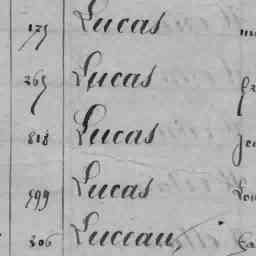 175 Lucas
265 Lucas
818 Lucas
599 Lucas
306 Luceau